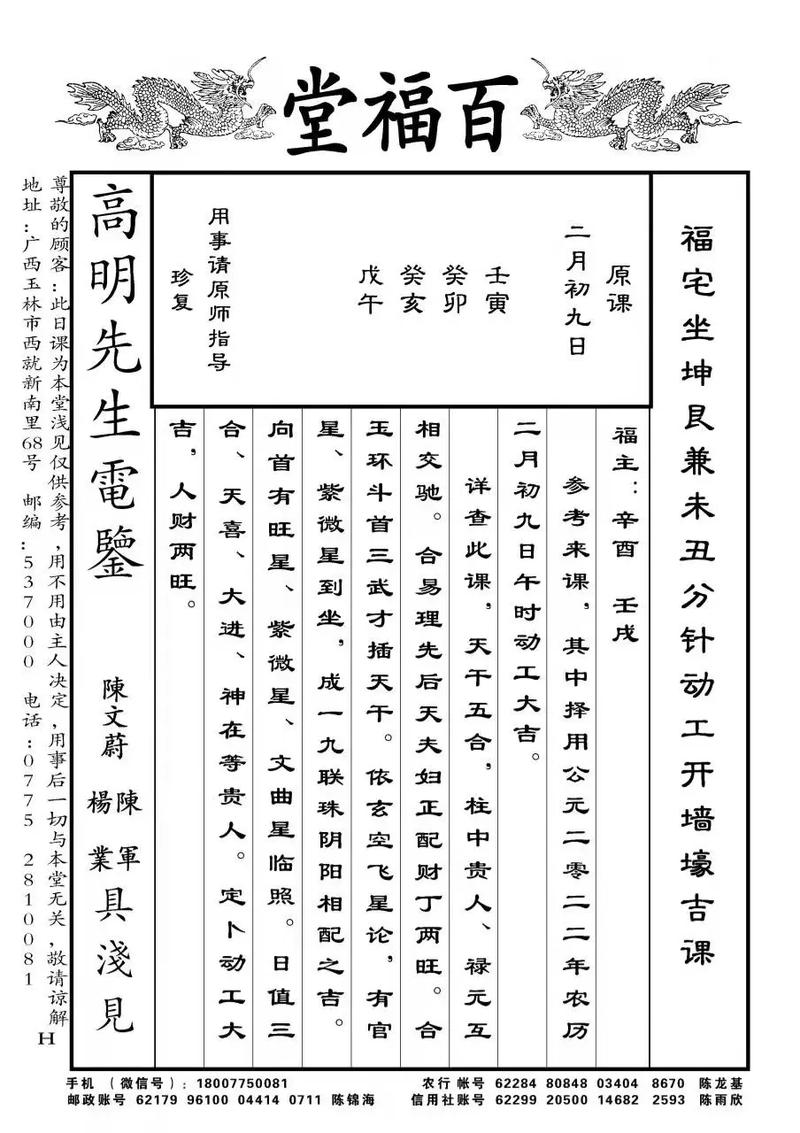 百福堂
福宅坐坤艮兼未丑分针动工开墙壕吉课
原课
二月初九日
壬寅
癸卯
癸亥
戊午
用事请原师指导
珍复
福主：辛酉　壬戌
参考来课，其中择用公元二零二二年农历
二月初九日午时动工大吉。
详查此课，天干五合，柱中贵人、禄元互
相交驰。合易理先后天夫妇正配财丁两旺。合
玉环斗首三武才插天干。依玄空飞星论，有官
星、紫微星到坐，成一九联珠阴阳相配之吉。
向首有旺星、紫微星、文曲星临照。日值三
合、天喜、大进、神在等贵人。定卜动工大
吉，人财两旺。
高明先生電鑒
陳文蔚
陳軍
楊業
具淺見
尊敬的顾客：此日课为本堂浅见仅供参考，用不用由主人决定，用事后一切与本堂无关，敬请谅解
H
地址：广西玉林市西就新南里68号　邮编：537000　电话：0775 2810081
手机（微信号）：18007750081
农行 帐号 62284 80848 03404 8670 陈龙基
邮政账号 62179 96100 04414 0711 陈锦海
信用社账号 62299 20500 14682 2593 陈雨欣